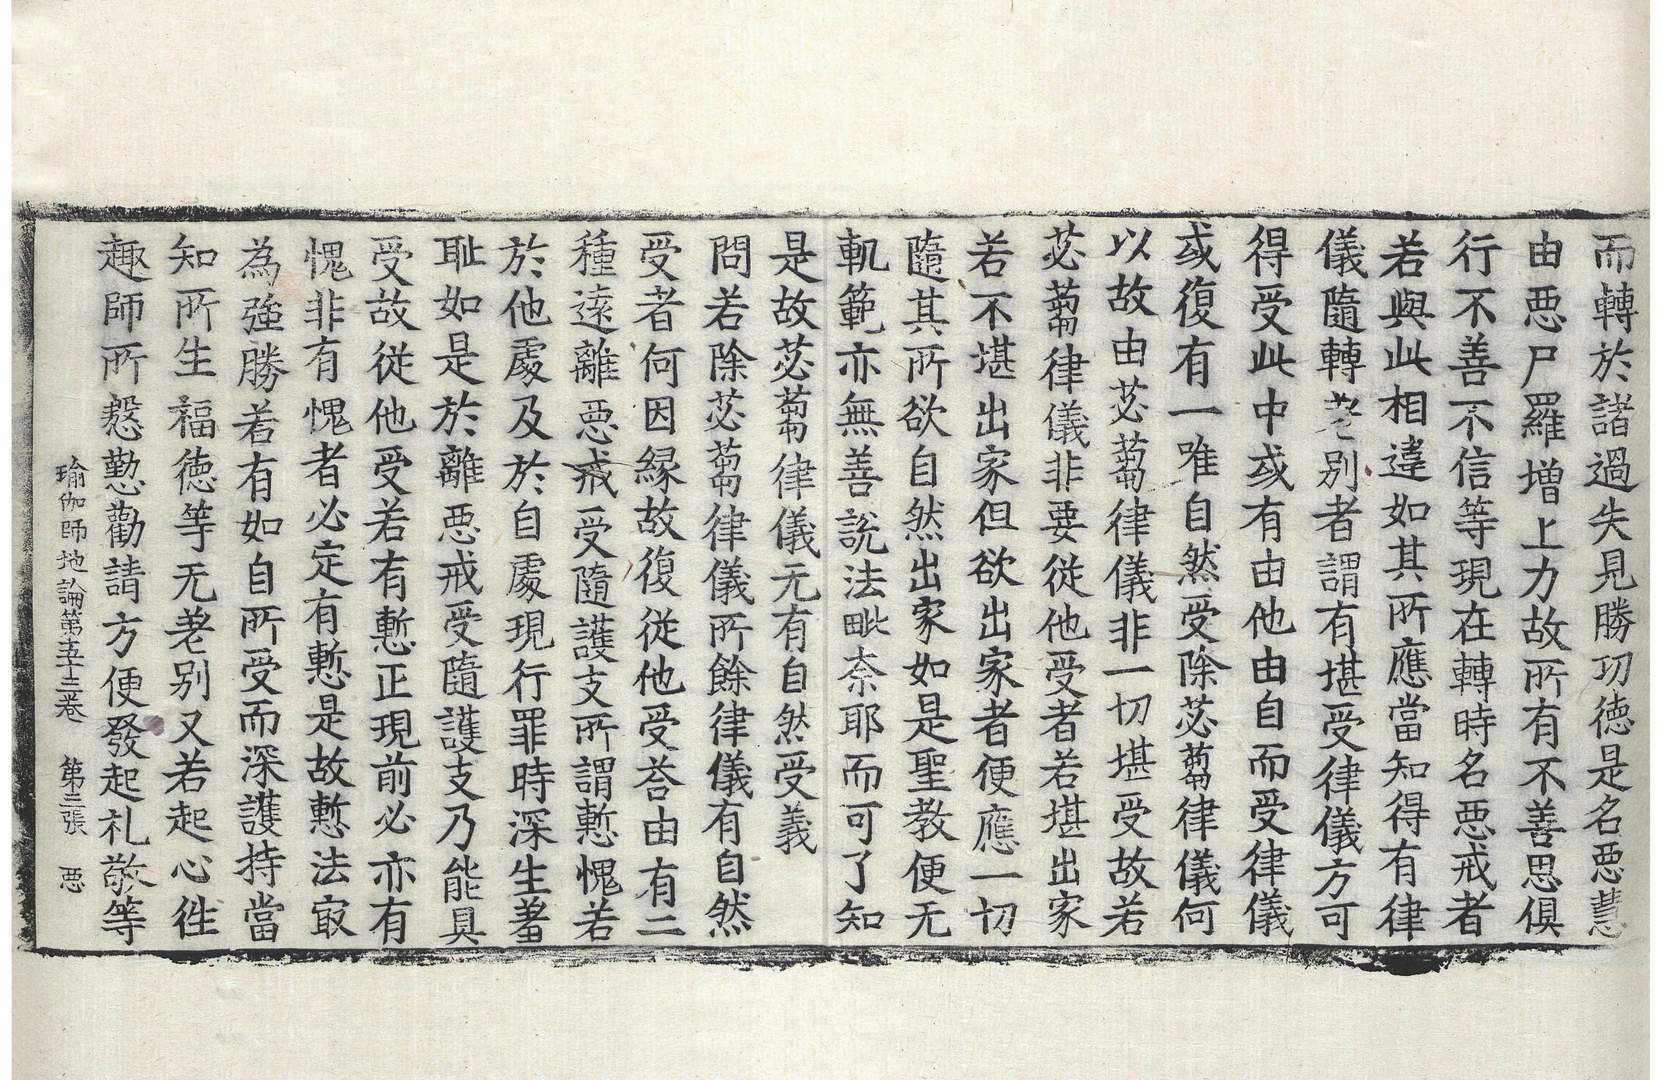 而轉於諸過失見勝功徳是名惡慧
由惡尸羅增上力故所有不善思俱
行不善不信等現在轉時名惡戒者
若與此相違如其所應當知得有律
儀隨轉差别者謂有堪受律儀方可
得受此中或有由他由自而受律儀
或復有一唯自然受除苾蒭律儀何
以故由苾蒭律儀非一切堪受故若
苾蒭律儀非要從他受者若堪出家
若不堪出家但欲出家者便應一切
隨其所欲自然出家如是聖教便无
軌範亦無善說法毗奈耶而可了知
是故苾蒭律儀无有自然受義
問若除苾蒭律儀所餘律儀有自然
受者何因縁故復從他受荅由有二
種遠離惡戒受隨護支所謂慙愧若
於他處及於自處現行罪時深生羞
耻如是於離惡戒受隨護支乃能具
受故從他受若有慙正現前必亦有
愧非有愧者必定有慙是故慙法㝡
為強勝若有如自所受而深護持當
知所生福徳等无差别又若起心徃
趣師所慇懃勸請方便發起礼敬等
瑜伽師地論第五十三卷　第三張　惡